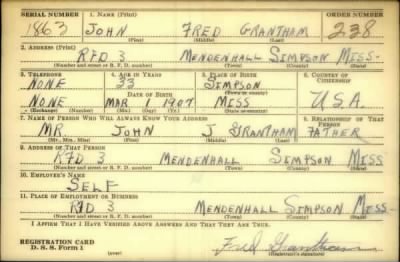 SERIAL NUMBER 1. NAME (Print) ORDER NUMBER
1863 JOHN FRED GRANTHAM 238
(First) (Middle) (Last)
2. ADDRESS (Print)
RFD 3 MENDENHALL SIMPSON MISS-
(Number and street or R. F. D. number) (Town) (County) (State)
3. TELEPHONE 4. AGE IN YEARS 5. PLACE OF BIRTH 6. COUNTRY OF CITIZENSHIP
NONE 33 SIMPSON
DATE OF BIRTH (Town or county)
NONE MAR 1 1907 MISS U.S.A.
(Exchange) (Number) (Mo.) (Day) (Yr.) (State or country)
7. NAME OF PERSON WHO WILL ALWAYS KNOW YOUR ADDRESS 8. RELATIONSHIP OF THAT PERSON
MR. JOHN J GRANTHAM FATHER
(Mr., Mrs., Miss) (First) (Middle) (Last)
9. ADDRESS OF THAT PERSON
RFD 3 MENDENHALL SIMPSON MISS
(Number and street or R. F. D. number) (Town) (County) (State)
10. EMPLOYER'S NAME
SELF
11. PLACE OF EMPLOYMENT OR BUSINESS
RFD MENDENHALL SIMPSON MISS-
(Number and street or R. F. D. number) (Town) (County) (State)
I AFFIRM THAT I HAVE VERIFIED ABOVE ANSWERS AND THAT THEY ARE TRUE.
REGISTRATION CARD
D. S. S. Form 1 (over) Fred Grantham
(Registrant's signature)